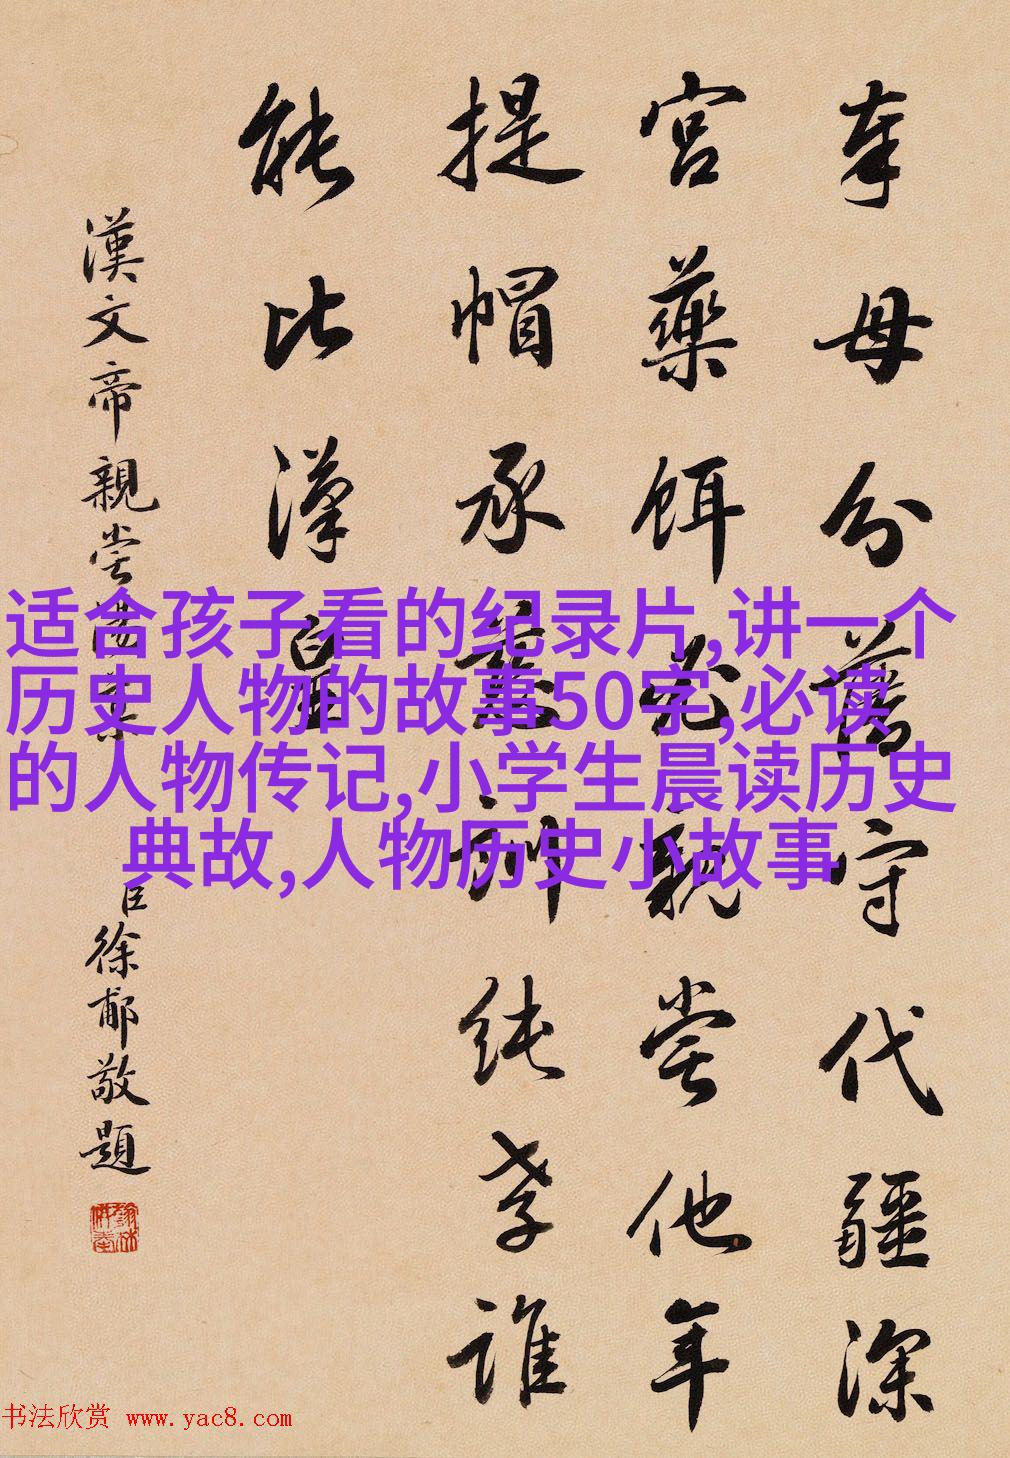 奉母分藩守代疆深
宮藥餌必親嘗他年
提帽承慈訓純孝誰
能比漢皇
漢文帝親嘗湯藥
臣徐郙敬題
适合孩子看的纪录片,讲一个
历史人物的故事50字,必读
的人物传记,小学生晨读历史
典故,人物历史小故事
书法欣赏 www.yac8.com